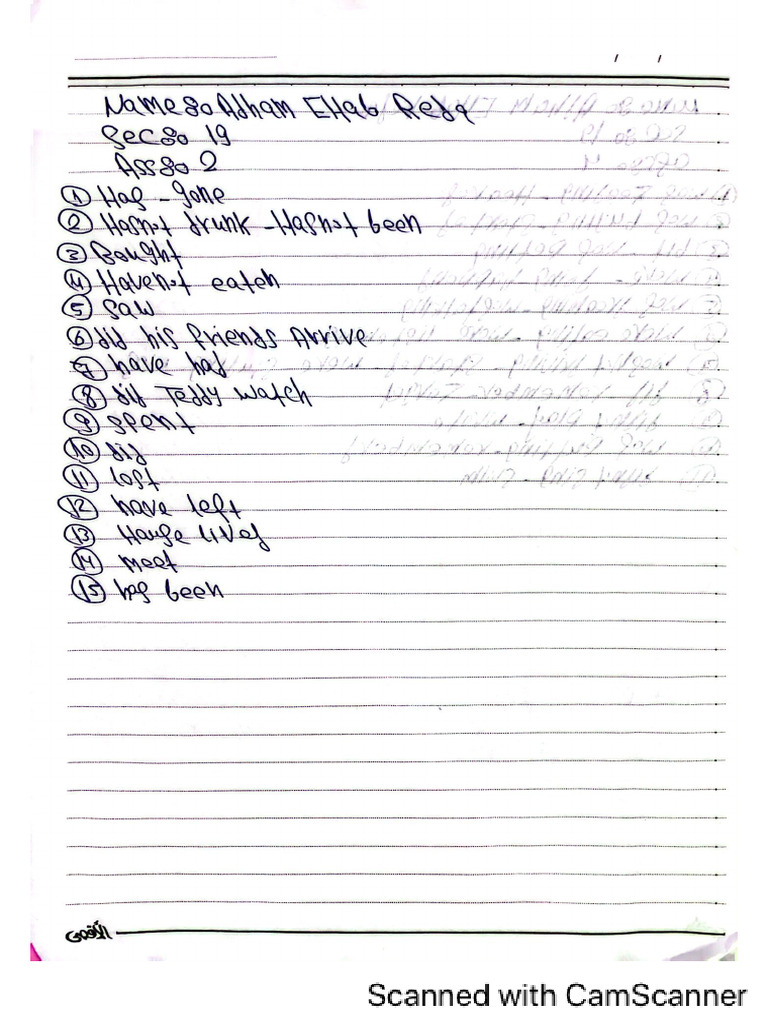 / /
Name:o Adham Ehab Reda
Sec:o 19
Ass:o 2
① Has - gone
② Hasnot drunk - Hasnot been
③ Bought
④ Havenot eaten
⑤ Saw
⑥ did his friends Arrive
⑦ have had
⑧ did Teddy watch
⑨ spent
⑩ did
⑪ lost
⑫ have left
⑬ lived
⑭ meet
⑮ has been
الأقصى
Scanned with CamScanner